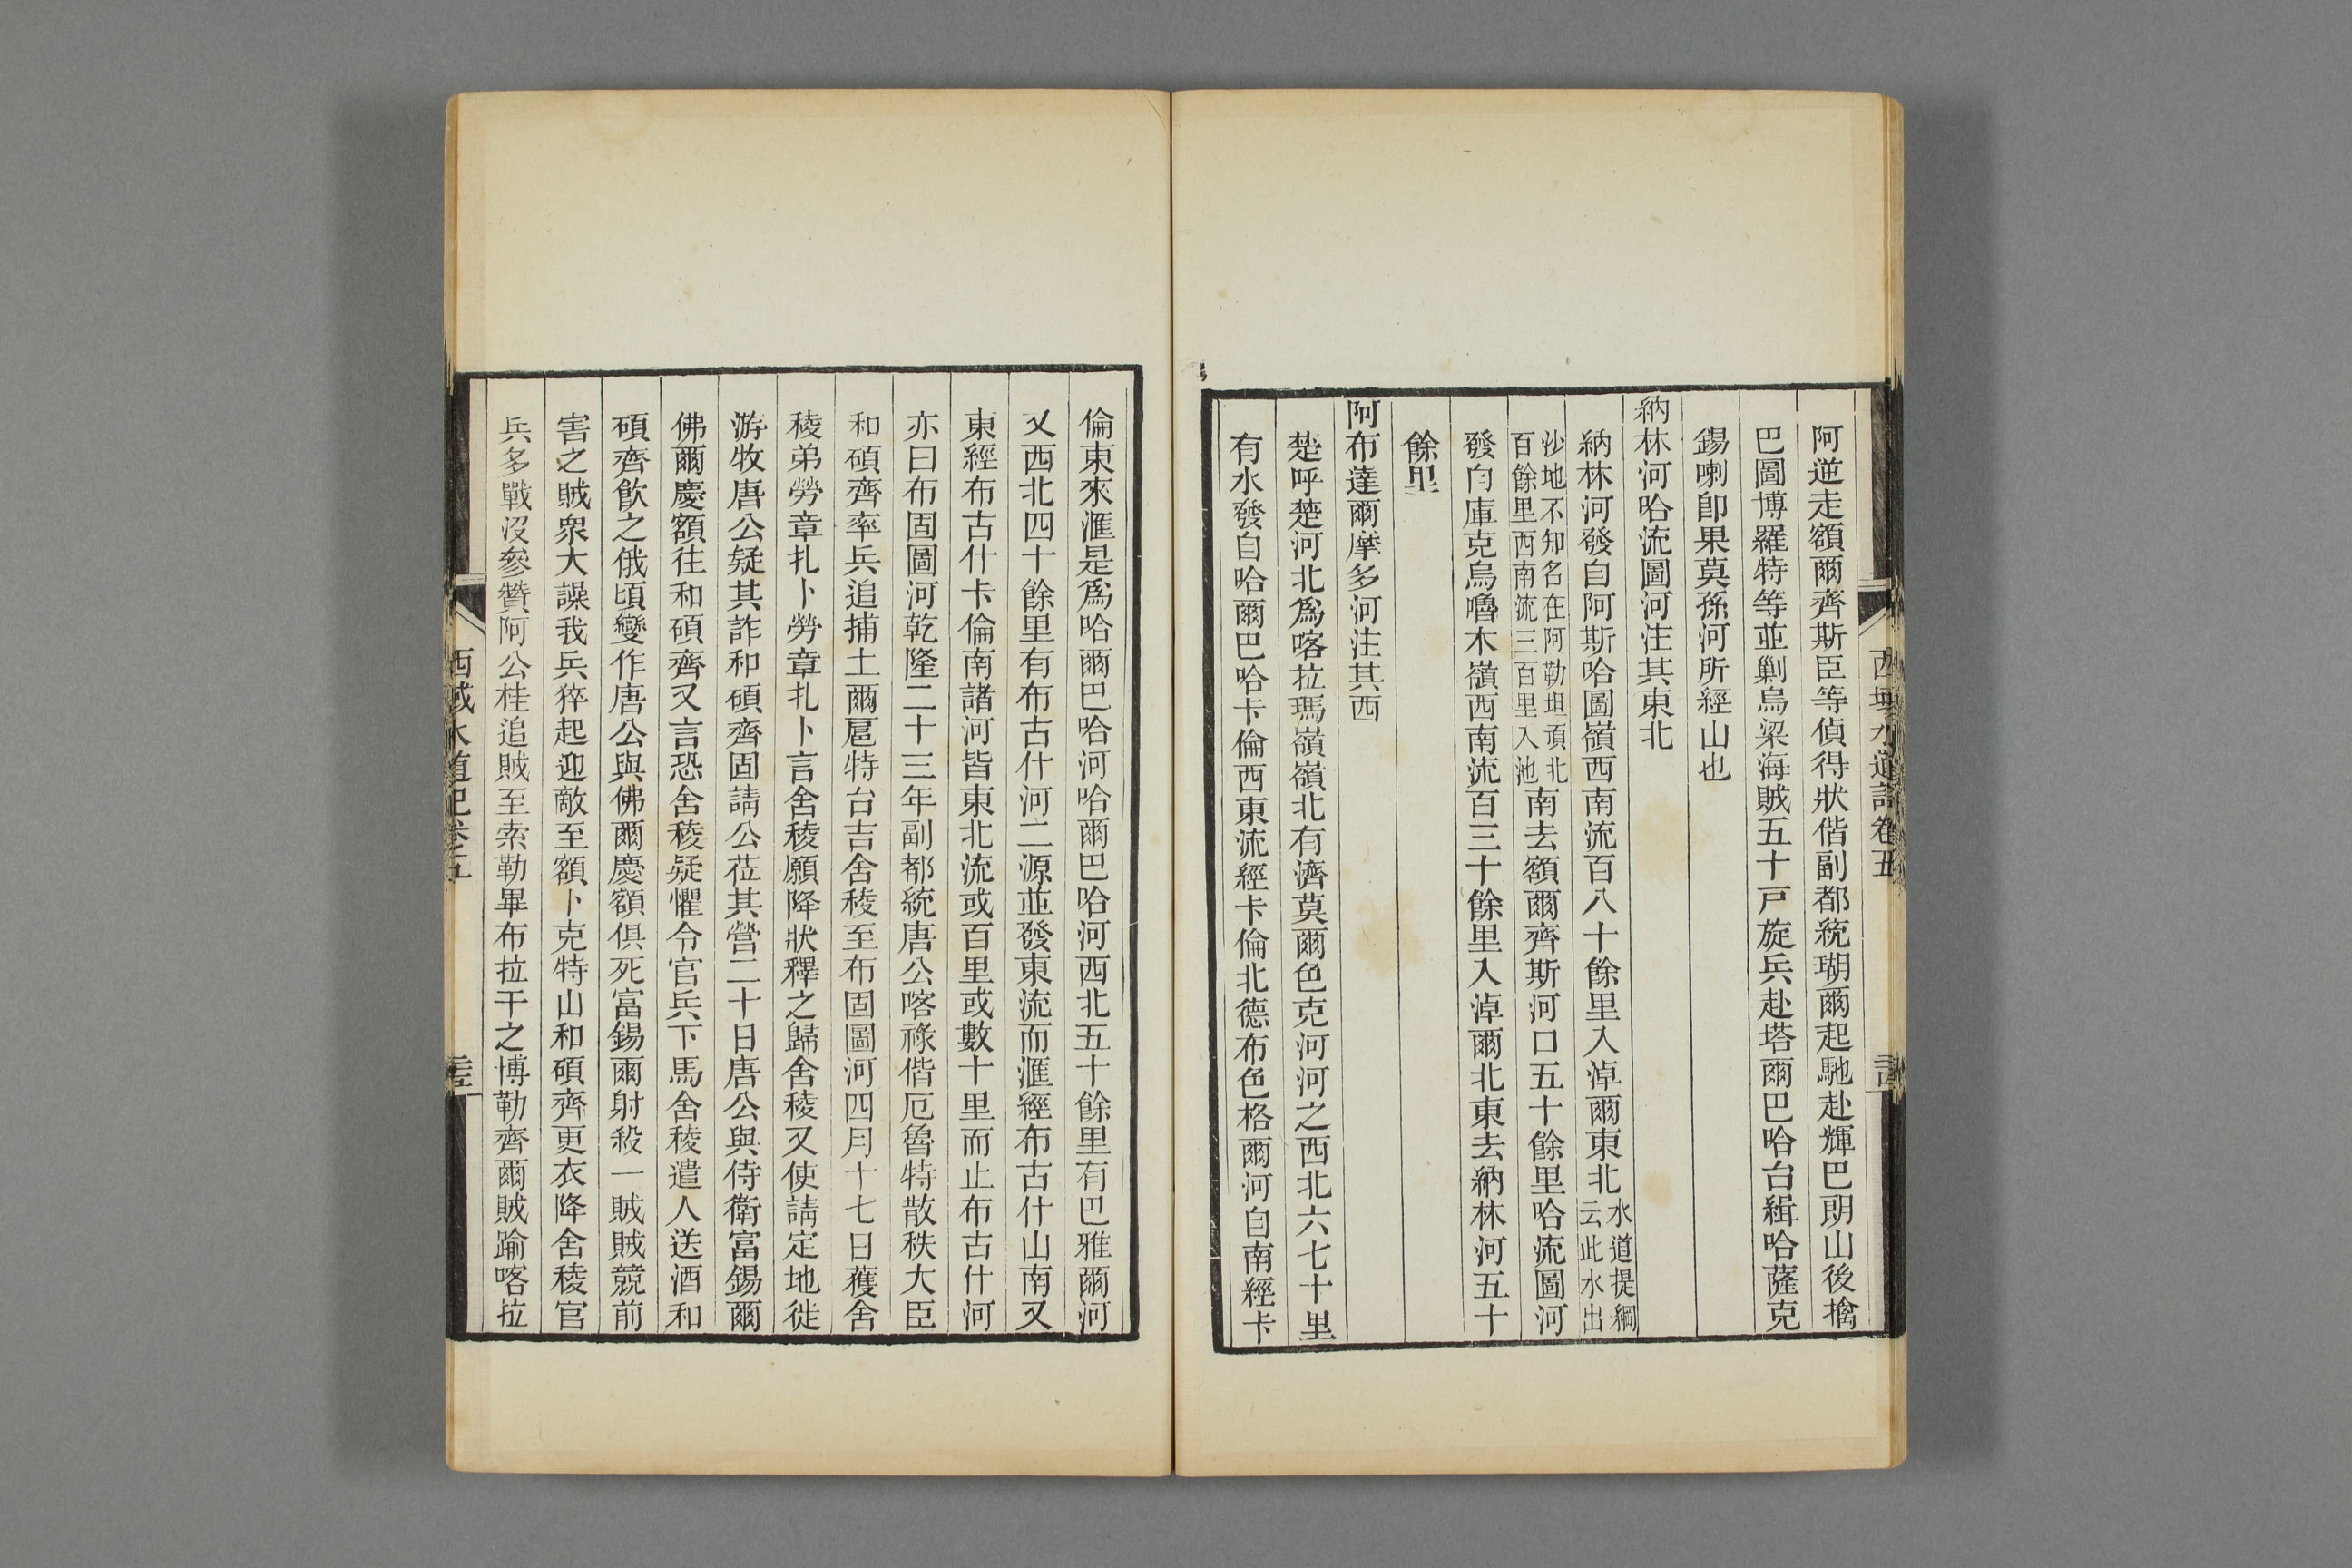 阿逆走額爾齊斯臣等偵得狀偕副都統瑚爾起馳赴輝巴朗山後擒
巴圖博羅特等並剿烏梁海賊五十戸旋兵赴塔爾巴哈台緝哈薩克
錫喇卽果莫孫河所經山也
納林河哈流圖河注其東北
納林河發自阿斯哈圖嶺西南流百八十餘里入淖爾東北水道提綱云此水出
沙地不知名在阿勒坦頭北百餘里西南流三百里入池南去額爾齊斯河口五十餘里哈流圖河
發自庫克烏嚕木嶺西南流百三十餘里入淖爾北東去納林河五十
餘里
阿布達爾摩多河注其西
楚呼楚河北爲喀拉瑪嶺嶺北有濟莫爾色克河河之西北六七十里
有水發自哈爾巴哈卡倫西東流經卡倫北德布色格爾河自南經卡
倫東來滙是爲哈爾巴哈河哈爾巴哈河西北五十餘里有巴雅爾河
又西北四十餘里有布古什河二源並發東流而滙經布古什山南又
東經布古什卡倫南諸河皆東北流或百里或數十里而止布古什河
亦曰布固圖河乾隆二十三年副都統唐公喀祿偕厄魯特散秩大臣
和碩齊率兵追捕土爾扈特台吉舍稜至布固圖河四月十七日獲舍
稜弟勞章扎卜勞章扎卜言舍稜願降狀釋之歸舍稜又使請定地徙
游牧唐公疑其詐和碩齊固請公莅其營二十日唐公與侍衛富錫爾
佛爾慶額往和碩齊又言恐舍稜疑懼令官兵下馬舍稜遣人送酒和
碩齊飮之俄頃變作唐公與佛爾慶額俱死富錫爾射殺一賊賊競前
害之賊衆大譟我兵猝起迎敵至額卜克特山和碩齊更衣降舍稜官
兵多戰沒參贊阿公桂追賊至索勒畢布拉干之博勒齊爾賊踰喀拉
西域水道記卷五
西域水道記卷五